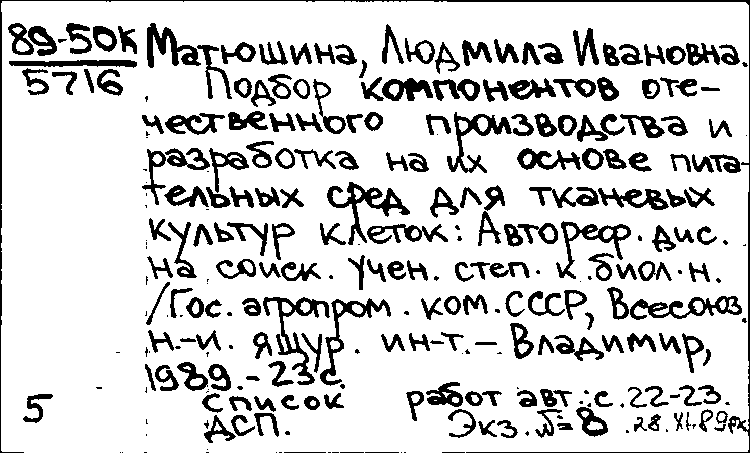 89-50К Матюшина, Людмила Ивановна.
5716 Подбор компонентов оте-
чественного производства и
разработка на их основе пита-
тельных сред для тканевых
культур клеток: Автореф. дис.
на соиск. учен. степ. к.биол.н.
/Гос. агропром. ком. СССР, Всесоюз.
н.-и. ящур. ин-т. – Владимир,
1989. - 23с.
5 список работ авт.: с. 22-23.
ДСП. Экз. №=8 .28.XI.89